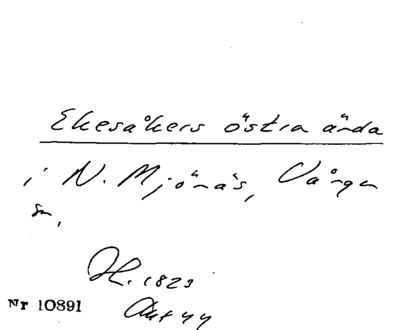 Ekesåkers östra ända
i N. Mjönäs, Vånga
sn,
H. 1823
Nr 10891